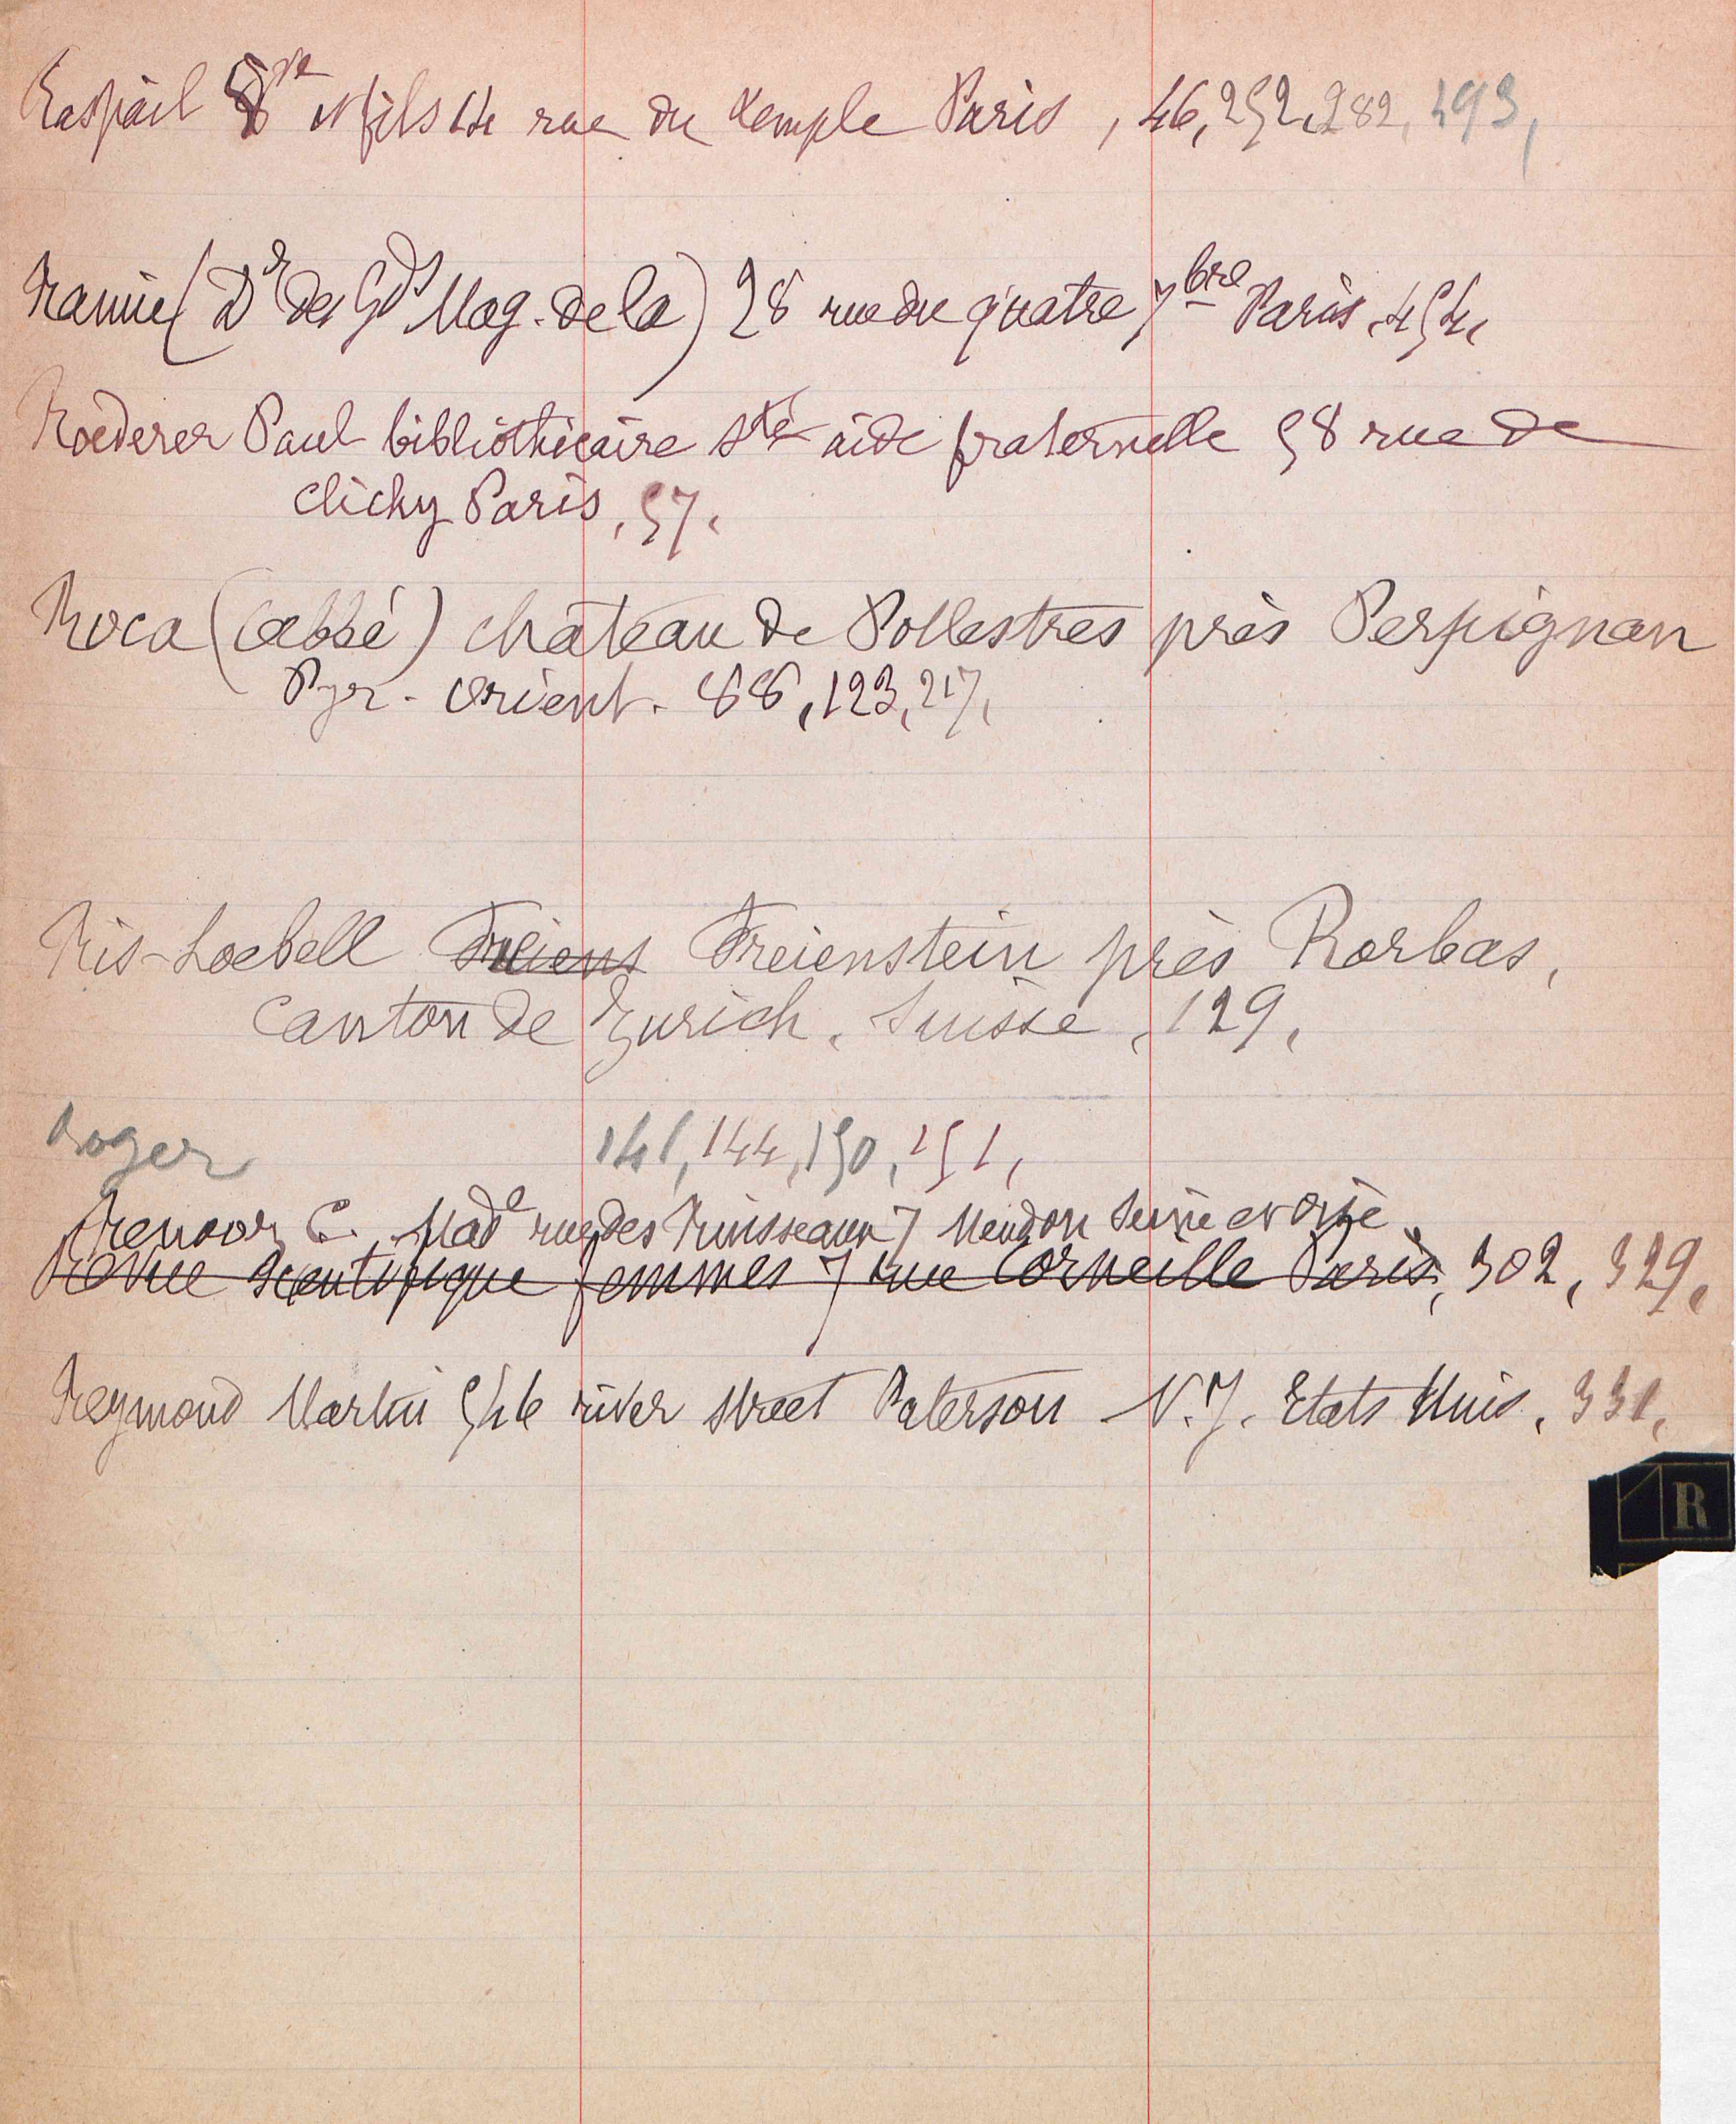 Raspail Vve et fils 14 rue du temple Paris, 46, 252, 282, 493,
Ramie (Dr des Gds Mag. de la) 28 rue du quatre 7bre Paris, 454,
Roederer Paul bibliothécaire Sté aide fraternelle 58 rue de
Clichy Paris, 57,
Roca (abbé) château de Pollestres près Perpignan
Pyr. Orient. 88, 123, 217,
Ris-Loebell Freienstein près Rorbas,
Canton de Zurich, Suisse, 129,
Roger 141, 144, 150, 151,
Renooz C. Made rue des Ruisseaux 7 Meudon Seine et Oise
Revue Scientifique femmes 7 rue Corneille Paris, 302, 329,
Reymond Martin 546 river street Paterson N.J. Etats Unis, 331,
R